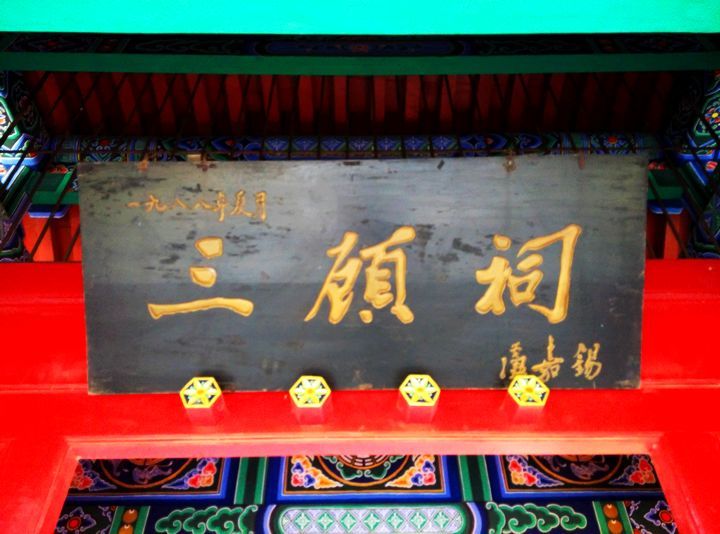 一九八八年夏月
三顧祠
嘉錫